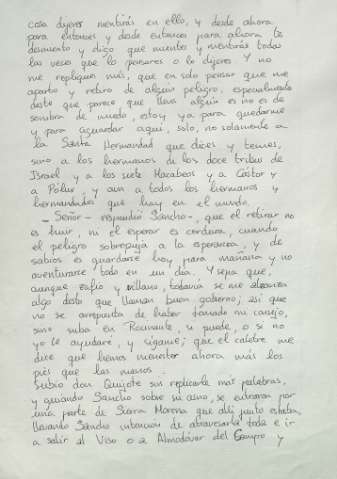 cosa dijeres mentirás en ello, y desde ahora
para entonces y desde entonces para ahora te
desmiento y digo que mientes y mentirás todas
las veces que lo pensares o lo dijeres. Y no
me repliques más, que en solo pensar que me
aparto y retiro de algún peligro, especialmente
deste que parece que lleva algún es no es de
sombra de miedo, estoy ya para quedarme
y para aguardar aquí, solo, no solamente a
la Santa Hermandad que dices y temes,
sino a los hermanos de los doce tribus de
Israel y a los siete Macabeos y a Cástor y
a Pólux, y aun a todos los hermanos y
hermandades que hay en el mundo.
- Señor - respondió Sancho -, que el retirar no
es huir, ni el esperar es cordura, cuando
el peligro sobrepuja a la esperanza, y de
sabios es guardarse hoy para mañana y no
aventurarse todo en un día. Y sepa que,
aunque zafio y villano, todavía se me alcanza
algo desto que llaman buen gobierno; así que
no se arrepienta de haber tomado mi consejo,
sino suba en Rocinante, si puede, o si no
yo le ayudaré, y sígame; que el caletre me
dice que hemos menester ahora más los
pies que las manos.
Subió don Quijote sin replicarle más palabras,
y guiando Sancho sobre su asno, se entraron por
una parte de Sierra Morena que allí junto estaba,
llevando Sancho intención de atravesarla toda e ir
a salir al Viso o a Almodóvar del Campo y